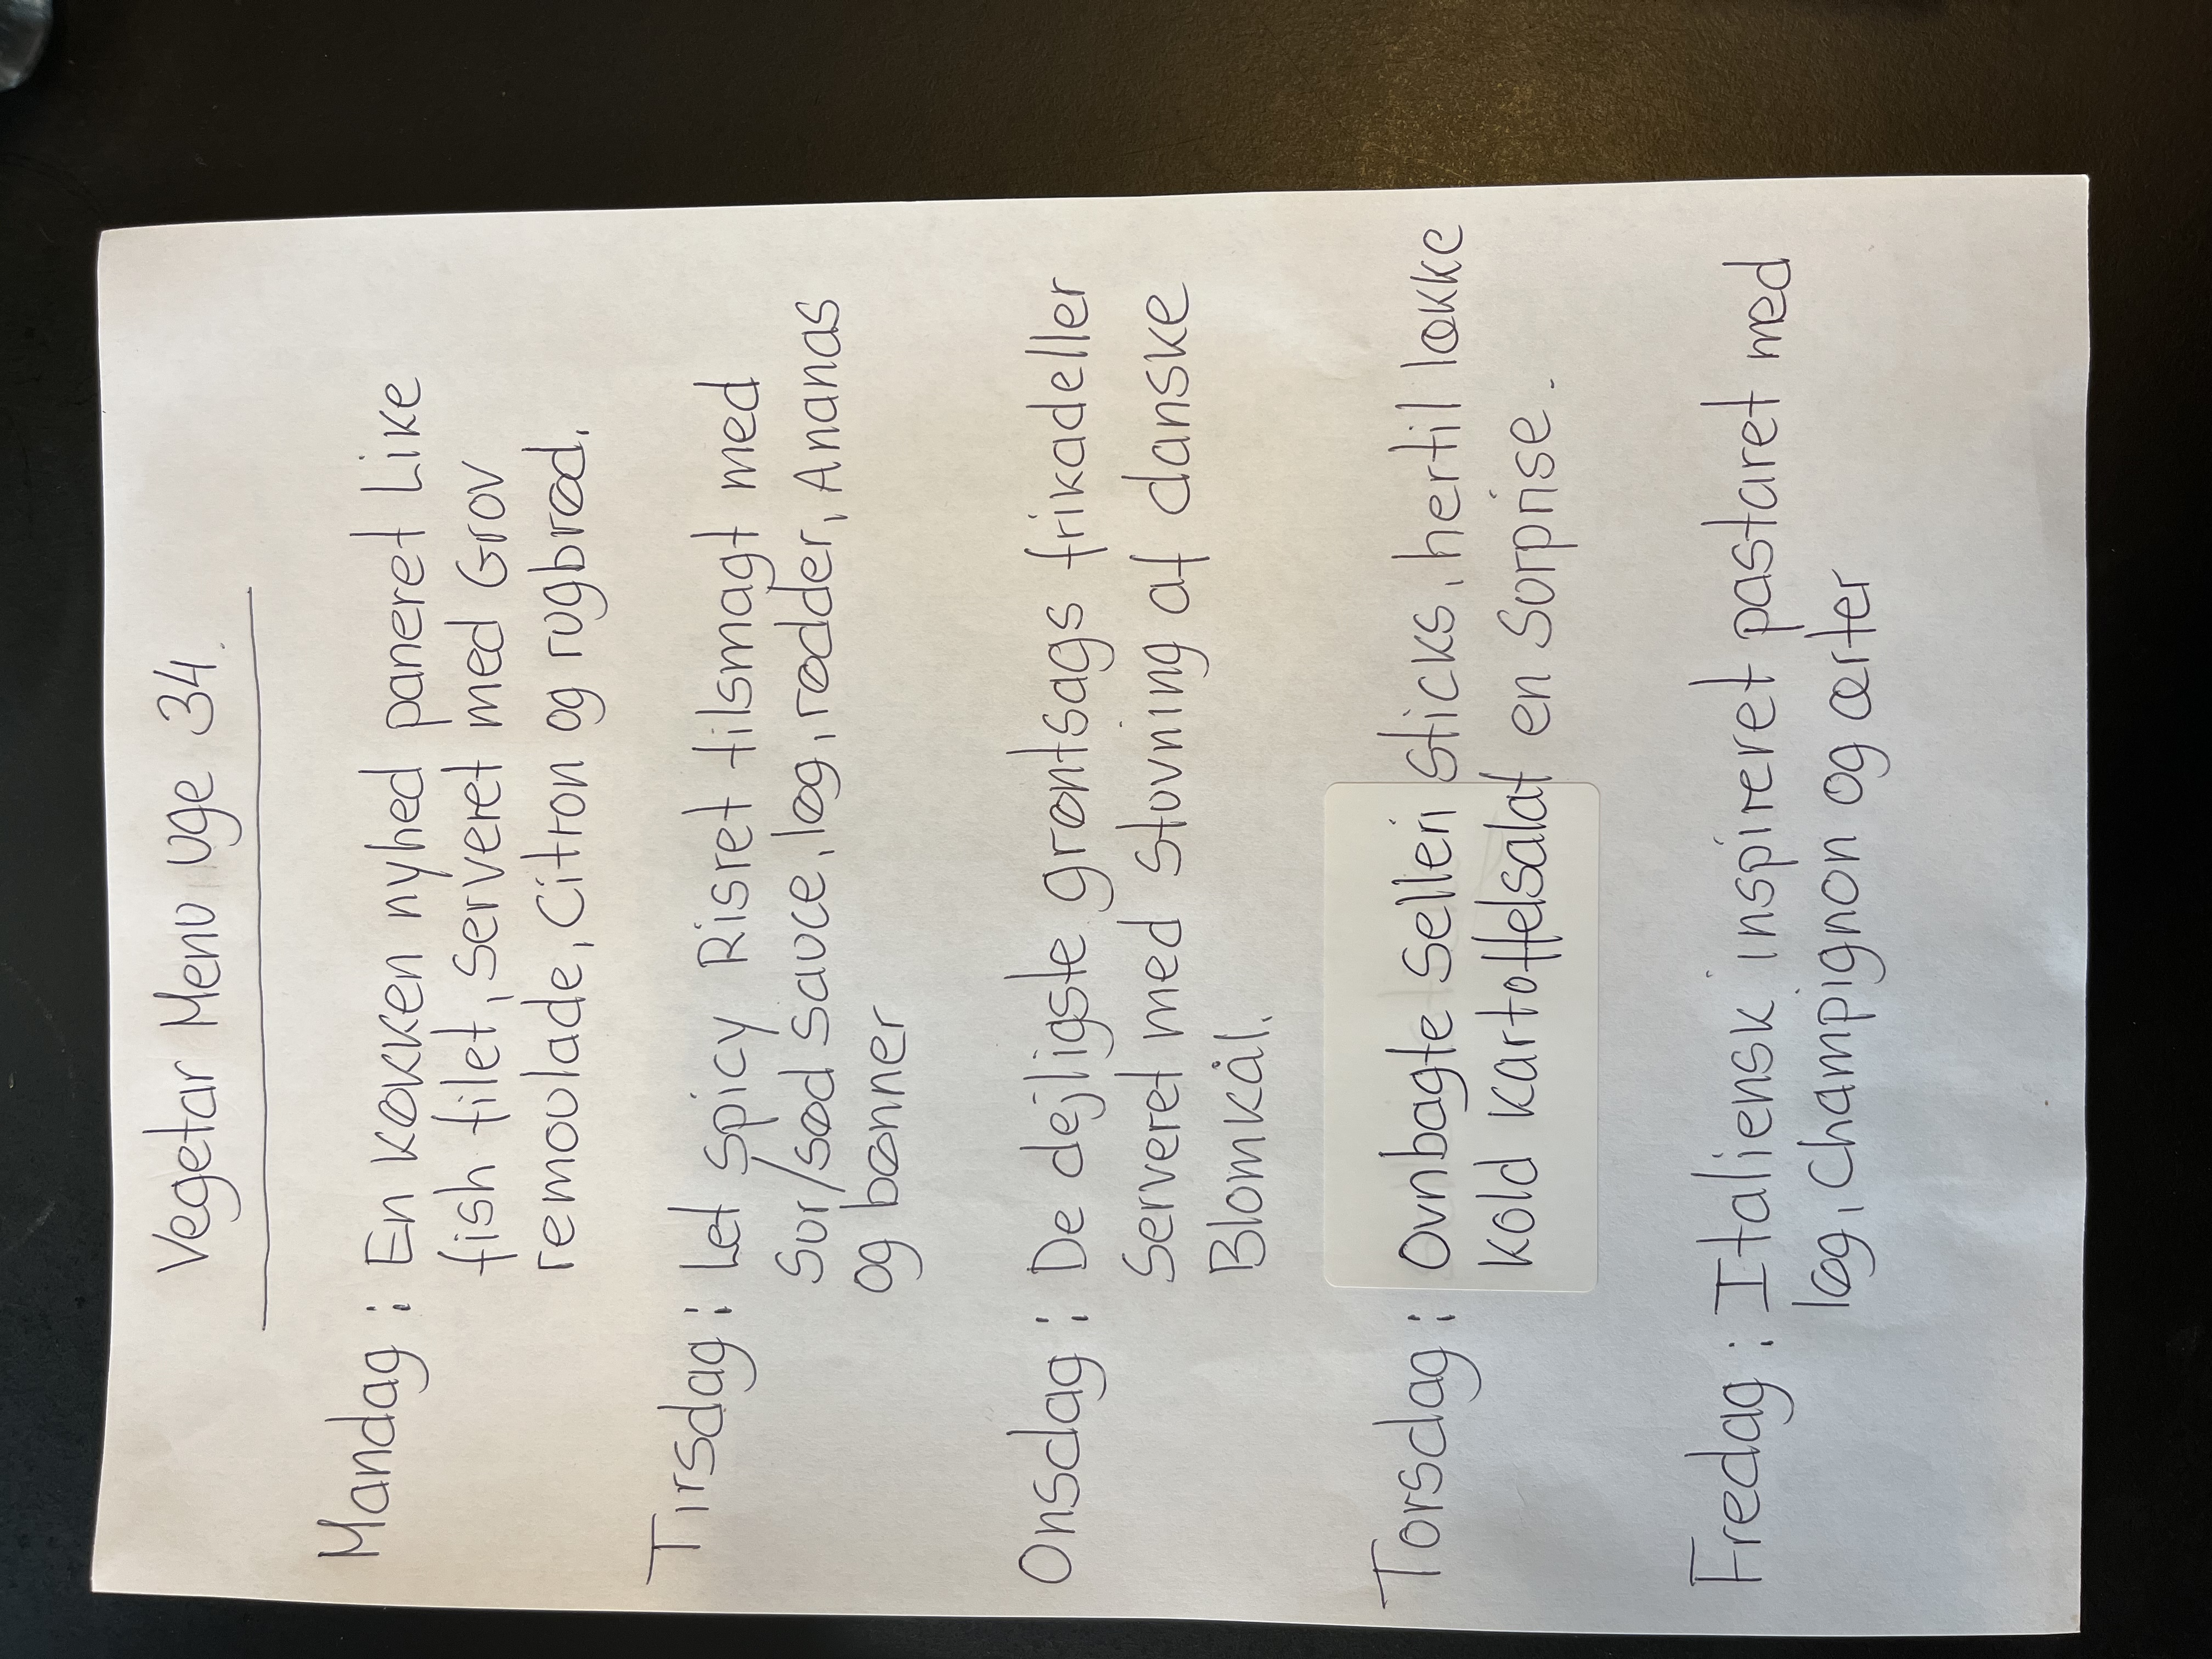 Vegetar Menu uge 34.
Mandag : En køkken nyhed paneret Like
fish filet, serveret med Grov
remoulade, Citron og rugbrød.
Tirsdag : Let spicy Risret tilsmagt med
Sur/sød sauce, løg, rødder, Ananas
og bønner
Onsdag : De dejligste grøntsags frikadeller
Serveret med stovning af danske
Blomkål.
Torsdag : Ovnbagte Selleri Sticks, hertil løkke
kold kartoffelsalat en Surprise.
Fredag : Italiensk inspireret pastaret med
løg, champignon og ærter